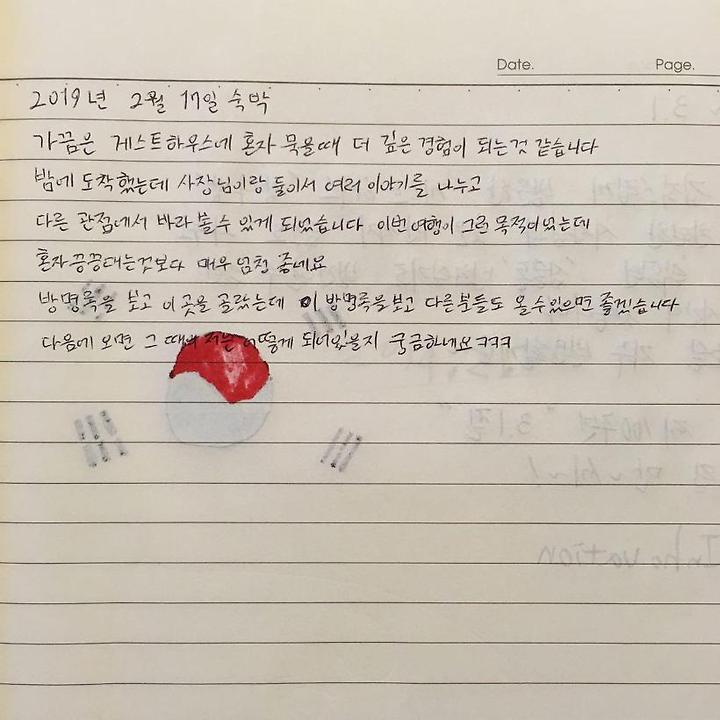 Date. Page.
2019년 2월 17일 숙박
가끔은 게스트하우스에 혼자 묵을때 더 깊은 경험이 되는것 같습니다
밤에 도착했는데 사장님이랑 둘이서 여러 이야기를 나누고
다른 관점에서 바라볼수 있게 되었습니다 이번 여행이 그런 목적이었는데
혼자끙끙대는것보다 매우 엄청 좋네요
방명록을 보고 이 곳을 골랐는데 이 방명록을보고 다른분들도 올수있으면 좋겠습니다
다음에 오면 그 때의 저는 어떻게 되어있을지 궁금하네요ㅋㅋㅋ